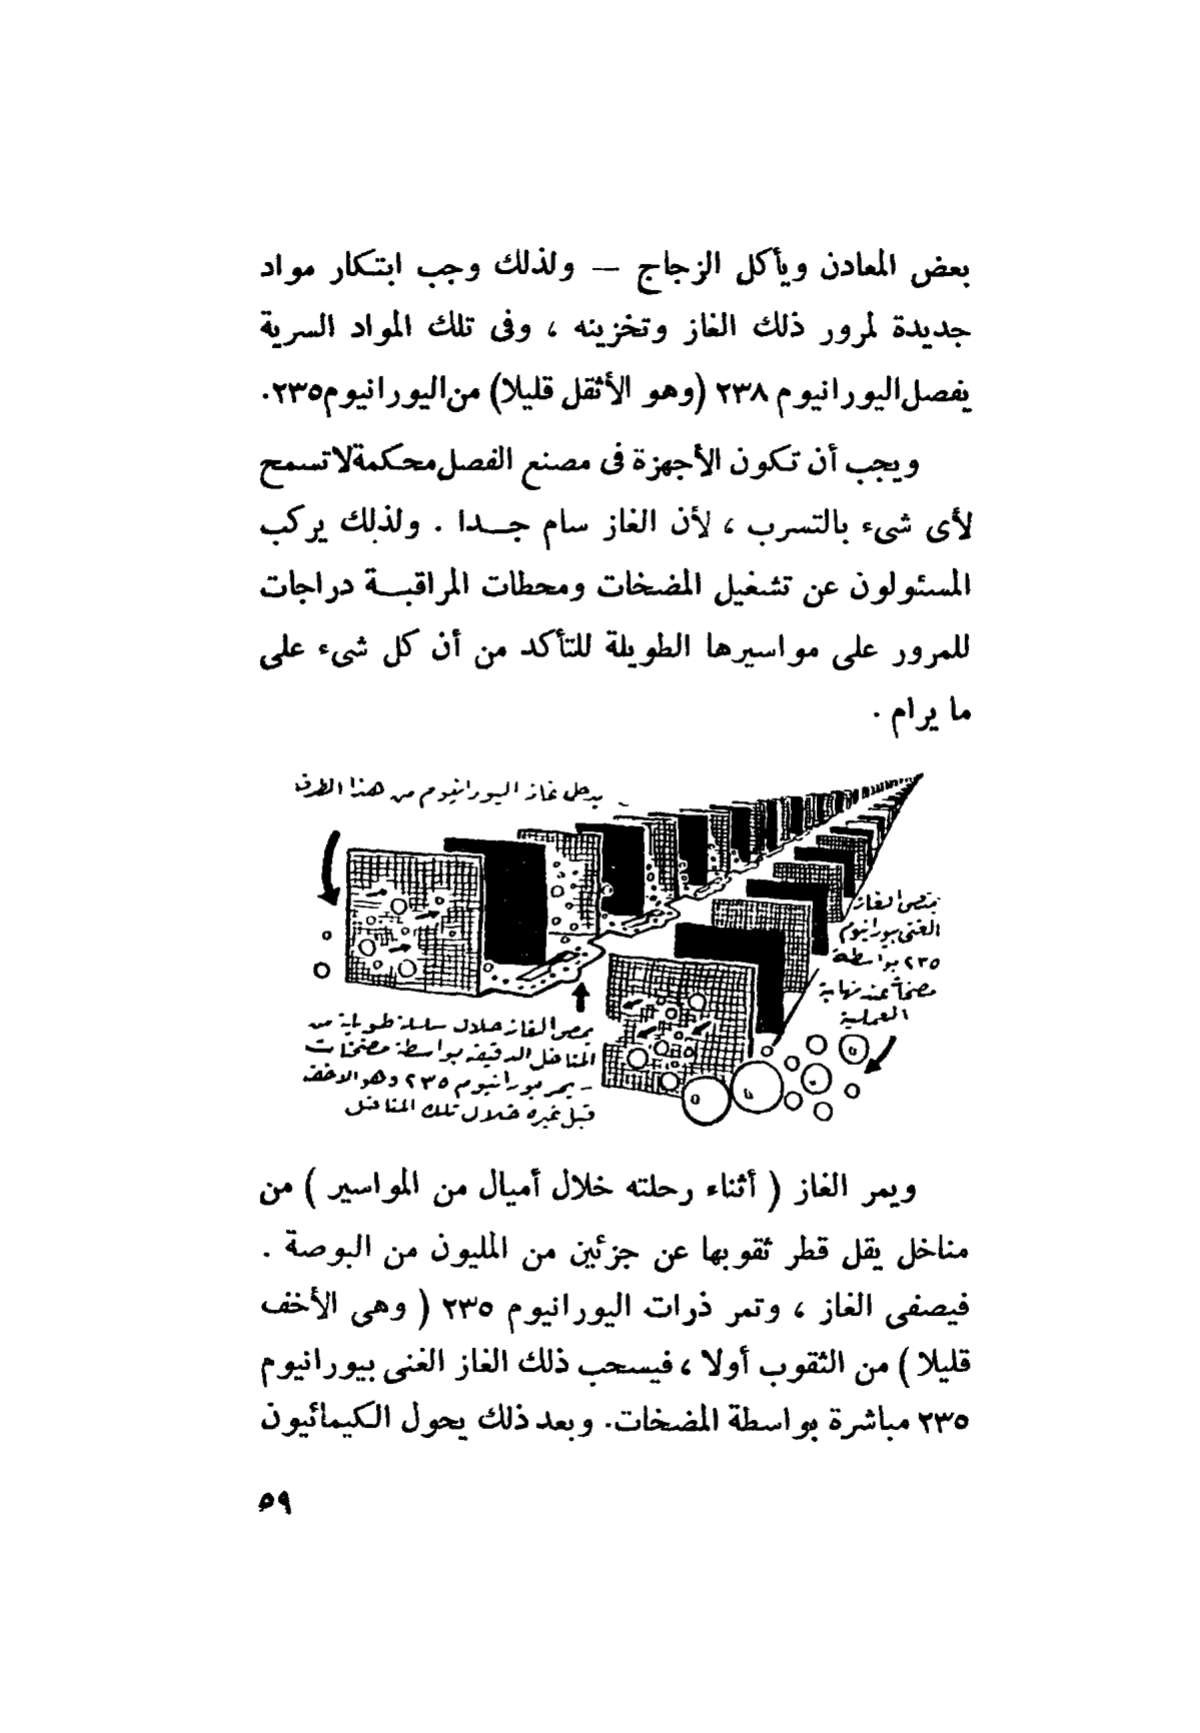 بعض المعادن ويأكل الزجاج — ولذلك وجب ابتكار مواد
جديدة لمرور ذلك الغاز وتخزينه ، وفى تلك المواد السرية
يفصل اليورانيوم ٢٣٨ (وهو الأثقل قليلا) من اليورانيوم ٢٣٥.
ويجب أن تكون الأجهزة فى مصنع الفصل محكمة لا تسمح
لأى شىء بالتسرب ، لأن الغاز سام جدا . ولذلك يركب
المسئولون عن تشغيل المضخات ومحطات المراقبة دراجات
للمرور على مواسيرها الطويلة للتأكد من أن كل شىء على
ما يرام .
يدخل غاز اليورانيوم من هذا الطرف
يمص الغاز خلال سلسلة طويلة من
المناخل الدقيقة بواسطة مضخات
- يمر يورانيوم ٢٣٥ وهو الأخف
قبل غيره خلال تلك المناخل
يمتص الغاز
الغنى بيورانيوم
٢٣٥ بواسطة
مضخات عند نهاية
العملية
ويمر الغاز ( أثناء رحلته خلال أميال من المواسير ) من
مناخل يقل قطر ثقوبها عن جزئين من المليون من البوصة .
فيصفى الغاز ، وتمر ذرات اليورانيوم ٢٣٥ ( وهى الأخف
قليلا ) من الثقوب أولا ، فيسحب ذلك الغاز الغنى بيورانيوم
٢٣٥ مباشرة بواسطة المضخات. وبعد ذلك يحول الكيمائيون
٥٩